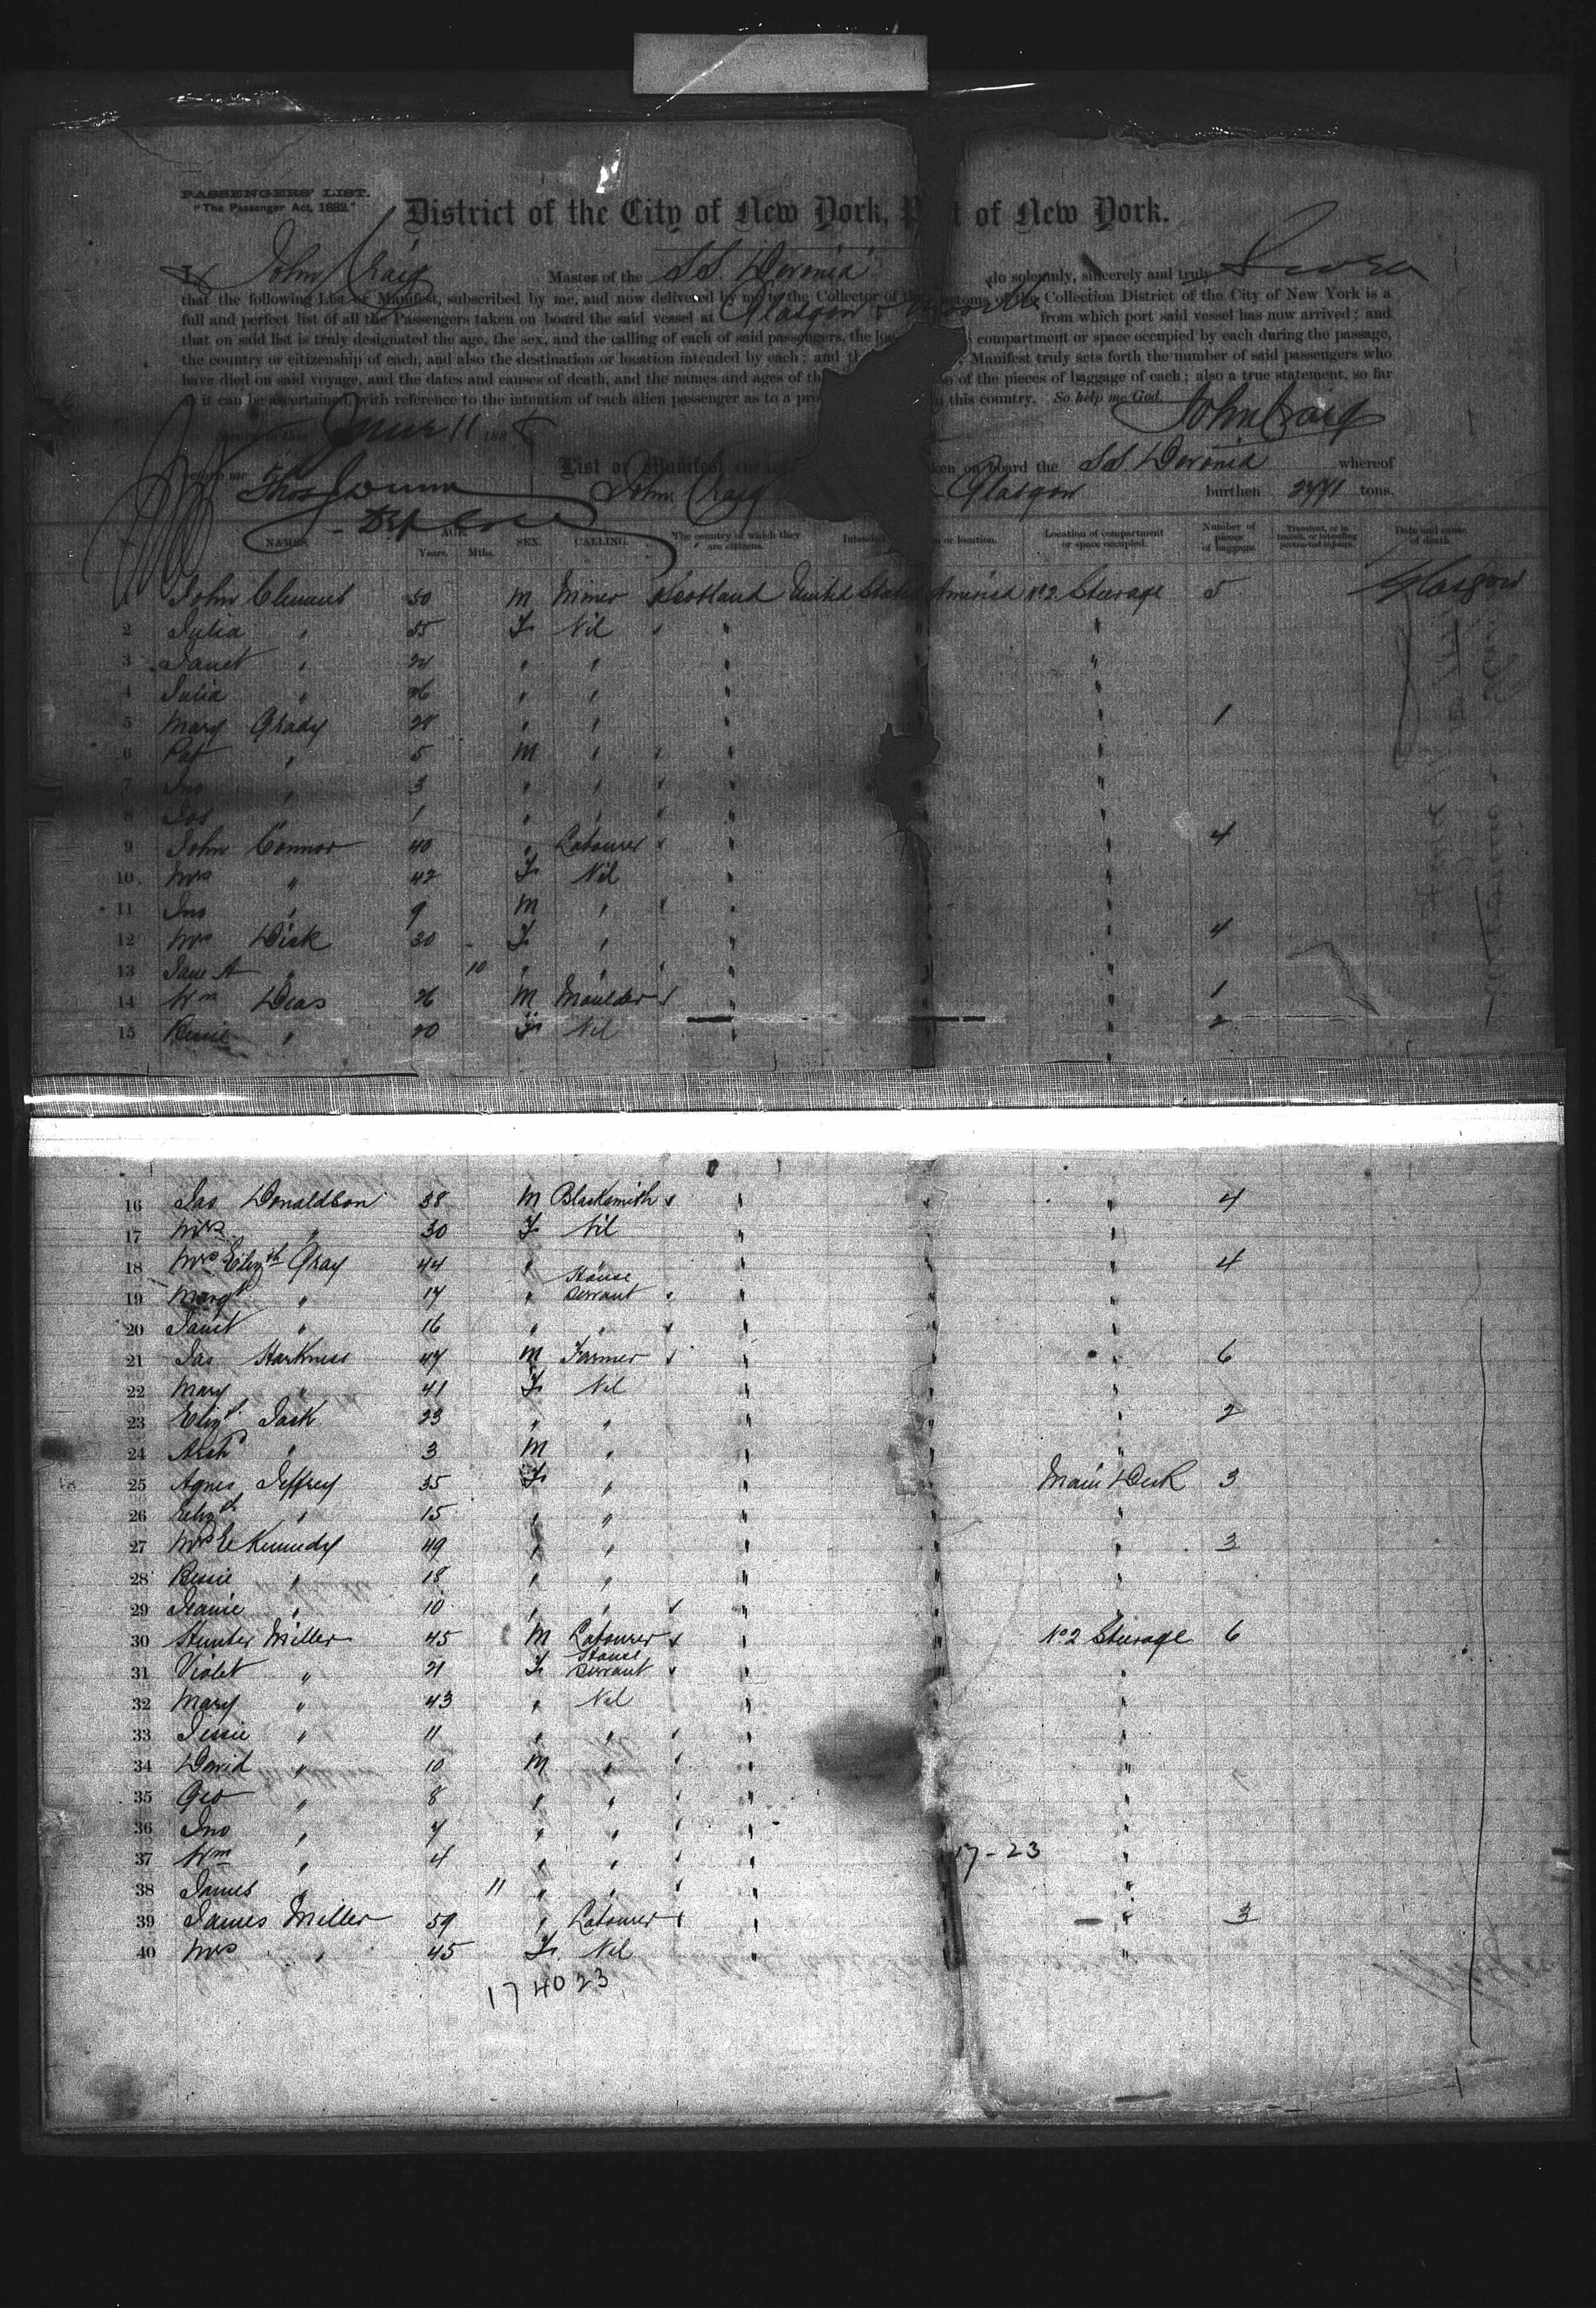 PASSENGERS' LIST.
"The Passenger Act, 1882."
District of the City of New York, P t of New York.
I, John Craig Master of the S.S. Devonia do solemnly, sincerely and truly Swear
that the following List or Manifest, subscribed by me, and now delivered by me to the Collector of the Customs of the Collection District of the City of New York is a
full and perfect list of all the Passengers taken on board the said vessel at Glasgow & Moville from which port said vessel has now arrived; and
that on said list is truly designated the age, the sex, and the calling of each of said passengers, the loc compartment or space occupied by each during the passage,
the country or citizenship of each, and also the destination or location intended by each; and th Manifest truly sets forth the number of said passengers who
have died on said voyage, and the dates and causes of death, and the names and ages of th so of the pieces of baggage of each; also a true statement, so far
as it can be ascertained, with reference to the intention of each alien passenger as to a pro n this country. So help me God. John Craig
Sworn to this June 11 188
before me List or Manifest ken on board the SS Devonia whereof
John Craig Glasgow burthen tons.
No. NAMES. AGE. Years. Mths. SEX. CALLING. The country of which they are citizens. Intende n or location. Location of compartment or space occupied. Number of pieces of baggage. Transient, or in transit, or intending protracted sojourn. Date and cause of death.
1 John Clemens 50 M Miner Scotland United States America No 2 Steerage 5 Glasgow
2 Julia " 55 F Nil " " "
3 Janet " 24 " " " "
4 Julia " 26 " " "
5 Mary Grady 28 " " " " 1
6 Pat " 5 M " " " "
7 Jno " 3 " " " " "
8 Jos " 1 " " " " "
9 John Connor 40 " Labourer " " " 4
10 Mrs " 42 F Nil " "
11 Jno " 9 M " " " "
12 Mrs Dick 30 F " " " 4
13 Jane A " 10 " " " " "
14 Wm Deas 26 M Moulder " " " 1
15 Bessie " 20 F Nil " " 2
16 Jas Donaldson 38 M Blacksmith " " " 4
17 Mrs " 30 F Nil " "
18 Mrs Elizth Gray 44 " " " 4
19 Margt " 17 " House Servant " " "
20 Janet " 16 " " " " "
21 Jas Harkness 47 M Farmer " " " 6
22 Mary " 41 F Nil " "
23 Elizt Jack 23 " " " " 2
24 Archd " 3 M " " "
25 Agnes Jeffrey 35 F " " Main Deck 3
26 Elizth " 15 " " " "
27 Mrs E Kennedy 49 " " " " 3
28 Bessie " 18 " " " "
29 Jeanie " 10 " " " " "
30 Hunter Miller 45 M Labourer " " No 2 Steerage 6
31 Violet " 21 F House Servant " " "
32 Mary " 43 " Nil " "
33 Jessie " 11 " " " " "
34 David " 10 M " " " "
35 Geo " 8 " " " " "
36 Jno " 7 " " " " "
37 Wm " 4 " " " " 17-23 "
38 James " 11 " " " " "
39 James Miller 59 " Labourer " " " 3
40 Mrs " 45 F Nil " "
17 40 23